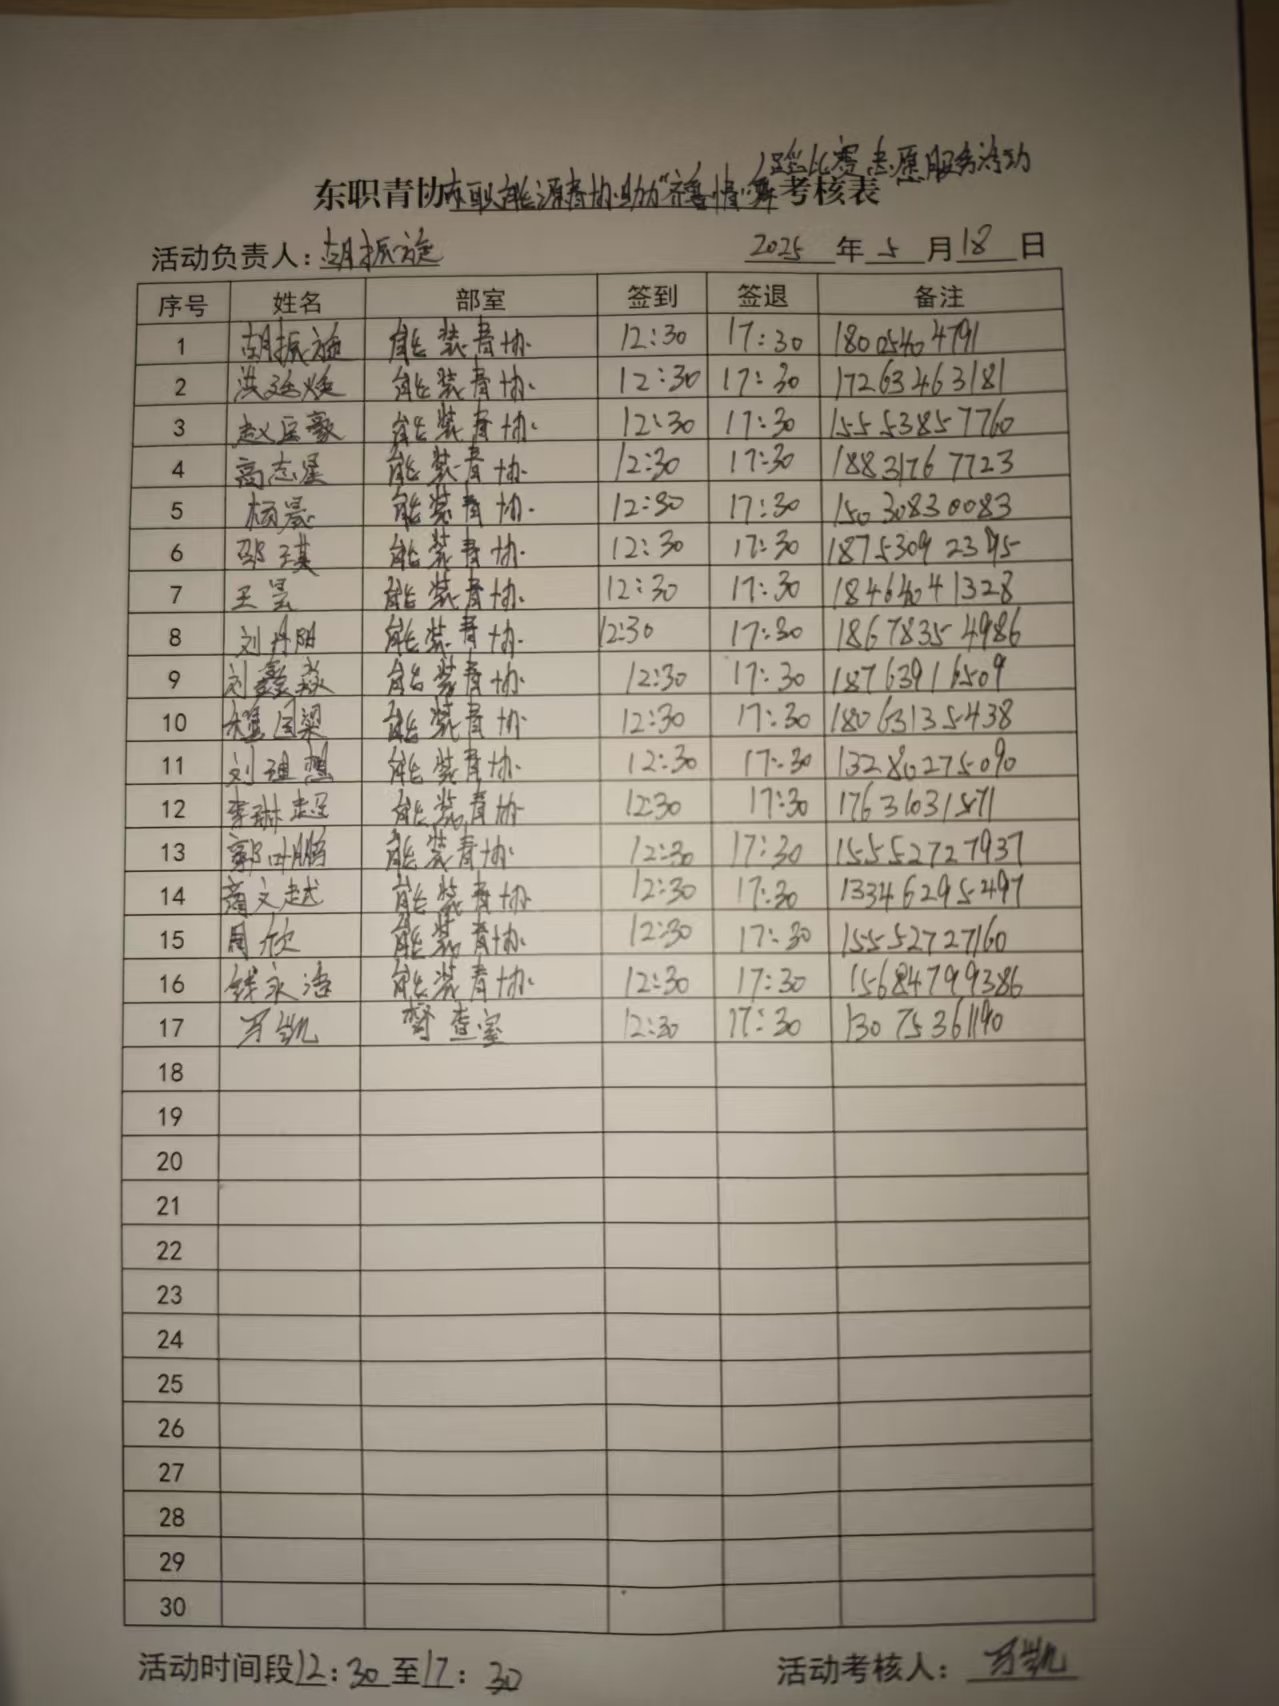 巡比赛志愿服务活动
东职青协东职能源青协助力“齐鲁情舞考核表
活动负责人:胡振旋 2025年5月18日
序号 姓名 部室 签到 签退 备注
1 胡振旋 能装青协 12:30 17:30 18005404791
2 能装青协 12:30 17:30 17263463181
3 能装青协 12:30 17:30 15553857760
4 高志星 能装青协 12:30 17:30 18831767723
5 杨晨 能装青协 12:30 17:30 15030830083
6 邵琪 能装青协 12:30 17:30 18753092395
7 王昙 能装青协 12:30 17:30 18464041328
8 刘丹阳 能装青协 12:30 17:30 18678354986
9 刘鑫淼 能装青协 12:30 17:30 18763916509
10 国梁 能装青协 12:30 17:30 18063135438
11 刘理想 能装青协 12:30 17:30 13280275090
12 李琳超 能装青协 12:30 17:30 17631031571
13 郭叶鹏 能装青协 12:30 17:30 15552727937
14 文越 能装青协 12:30 17:30 13346295497
15 周欣 能装青协 12:30 17:30 15552727160
16 钱永浩 能装青协 12:30 17:30 15684799386
17 万凯 督查室 12:30 17:30 13075361190
18
19
20
21
22
23
24
25
26
27
28
29
30
活动时间段12:30至17:30 活动考核人:万凯